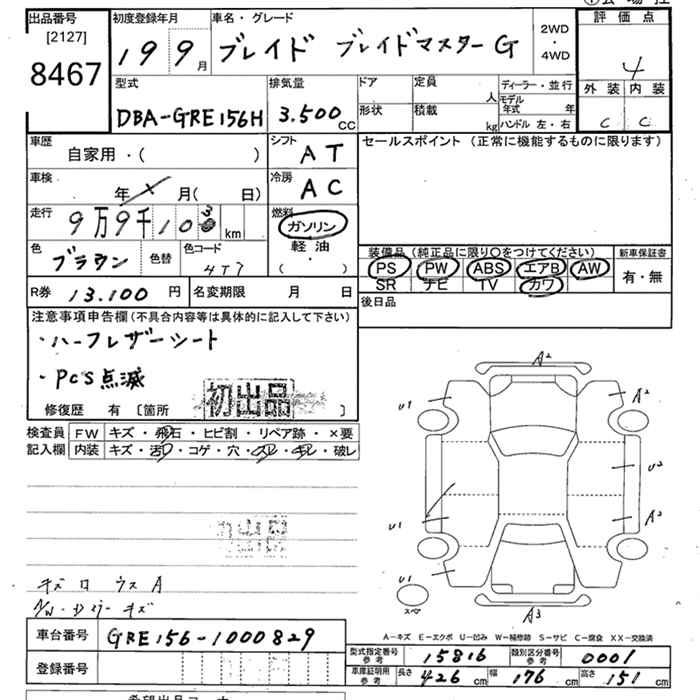 出品番号
[2127]
8467
初度登録年月
19 9月
車名・グレード
ブレイド ブレイドマスターG
2WD
・
4WD
評価点
4
外装 内装
C C
型式
DBA-GRE156H
排気量
3.500cc
ドア
形状
定員 人
積載 kg
ディーラー・並行
モデル年式 年
ハンドル 左・右
車歴
自家用・( )
シフト
AT
セールスポイント (正常に機能するものに限ります)
車検
年 月( 日)
冷房
AC
走行
9万9千10 km
燃料
ガソリン
軽油
・( )
色
ブラウン
色替
色コード
4T7
装備品 (純正品に限り○をつけてください)
PS PW ABS エアB AW
SR ナビ TV カワ
新車保証書
有・無
R券 13.100円
名変期限 月 日
後日品
注意事項申告欄 (不具合内容等は具体的に記入して下さい)
・ハーフレザーシート
・PCS点滅
初出品
修復歴 有 [箇所 ]
検査員
記入欄
FW キズ・飛石・ヒビ割・リペア跡・×要
内装 キズ・汚レ・コゲ・穴・スレ・キレ・破レ
A2
U1
A2
U2
U1
A2
U1
スペ
A3
A-キズ E-エクボ U-凹み W-補修跡 S-サビ C-腐食 XX-交換済
車台番号
GRE156-1000829
登録番号
型式指定番号
参考
15816
類別区分番号
参考
0001
車庫証明用
参考
長さ 426cm
幅 176cm
高さ 151cm